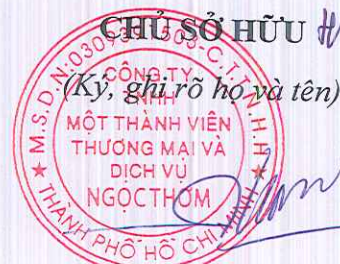 CHỦ SỞ HỮU
(Ký, ghi rõ họ và tên)
CÔNG TY
TNHH
MỘT THÀNH VIÊN
THƯƠNG MẠI VÀ
DỊCH VỤ
NGỌC THƠM
THÀNH PHỐ HỒ CHÍ MINH